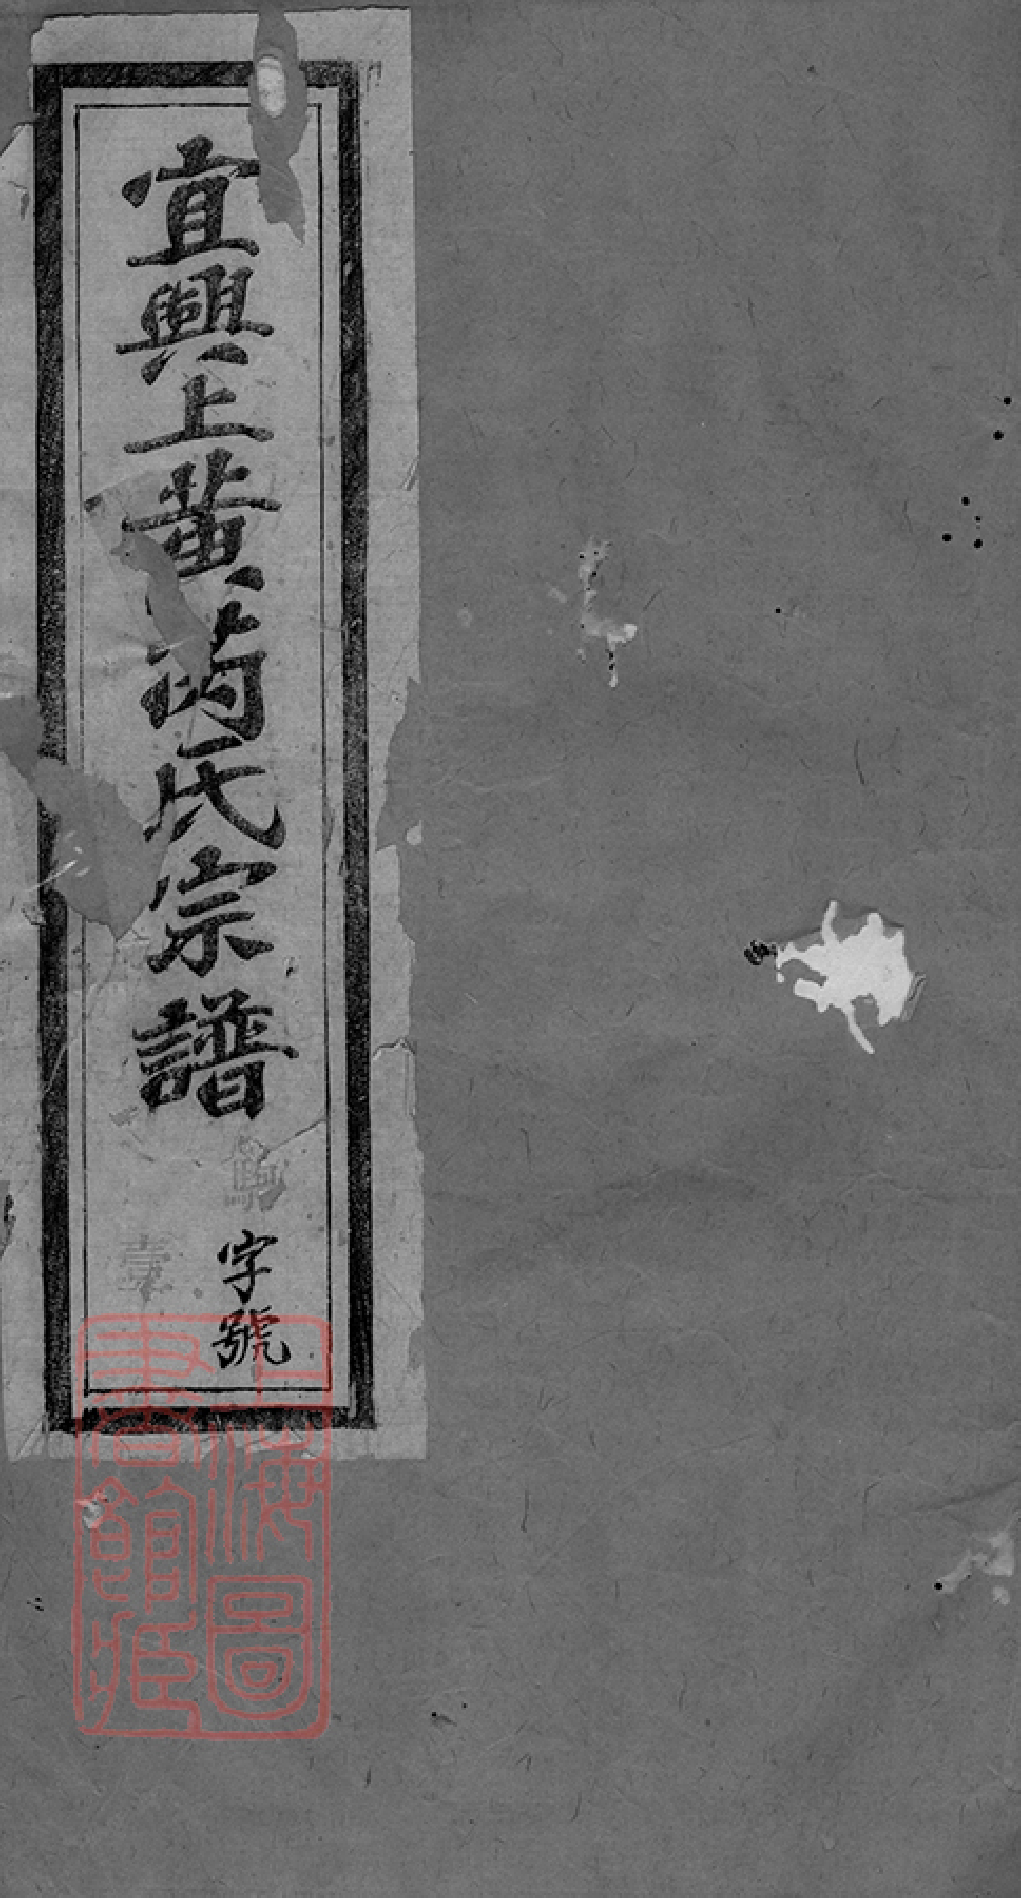 宜興上黃氏宗譜
字號
壹
上海圖
書館藏